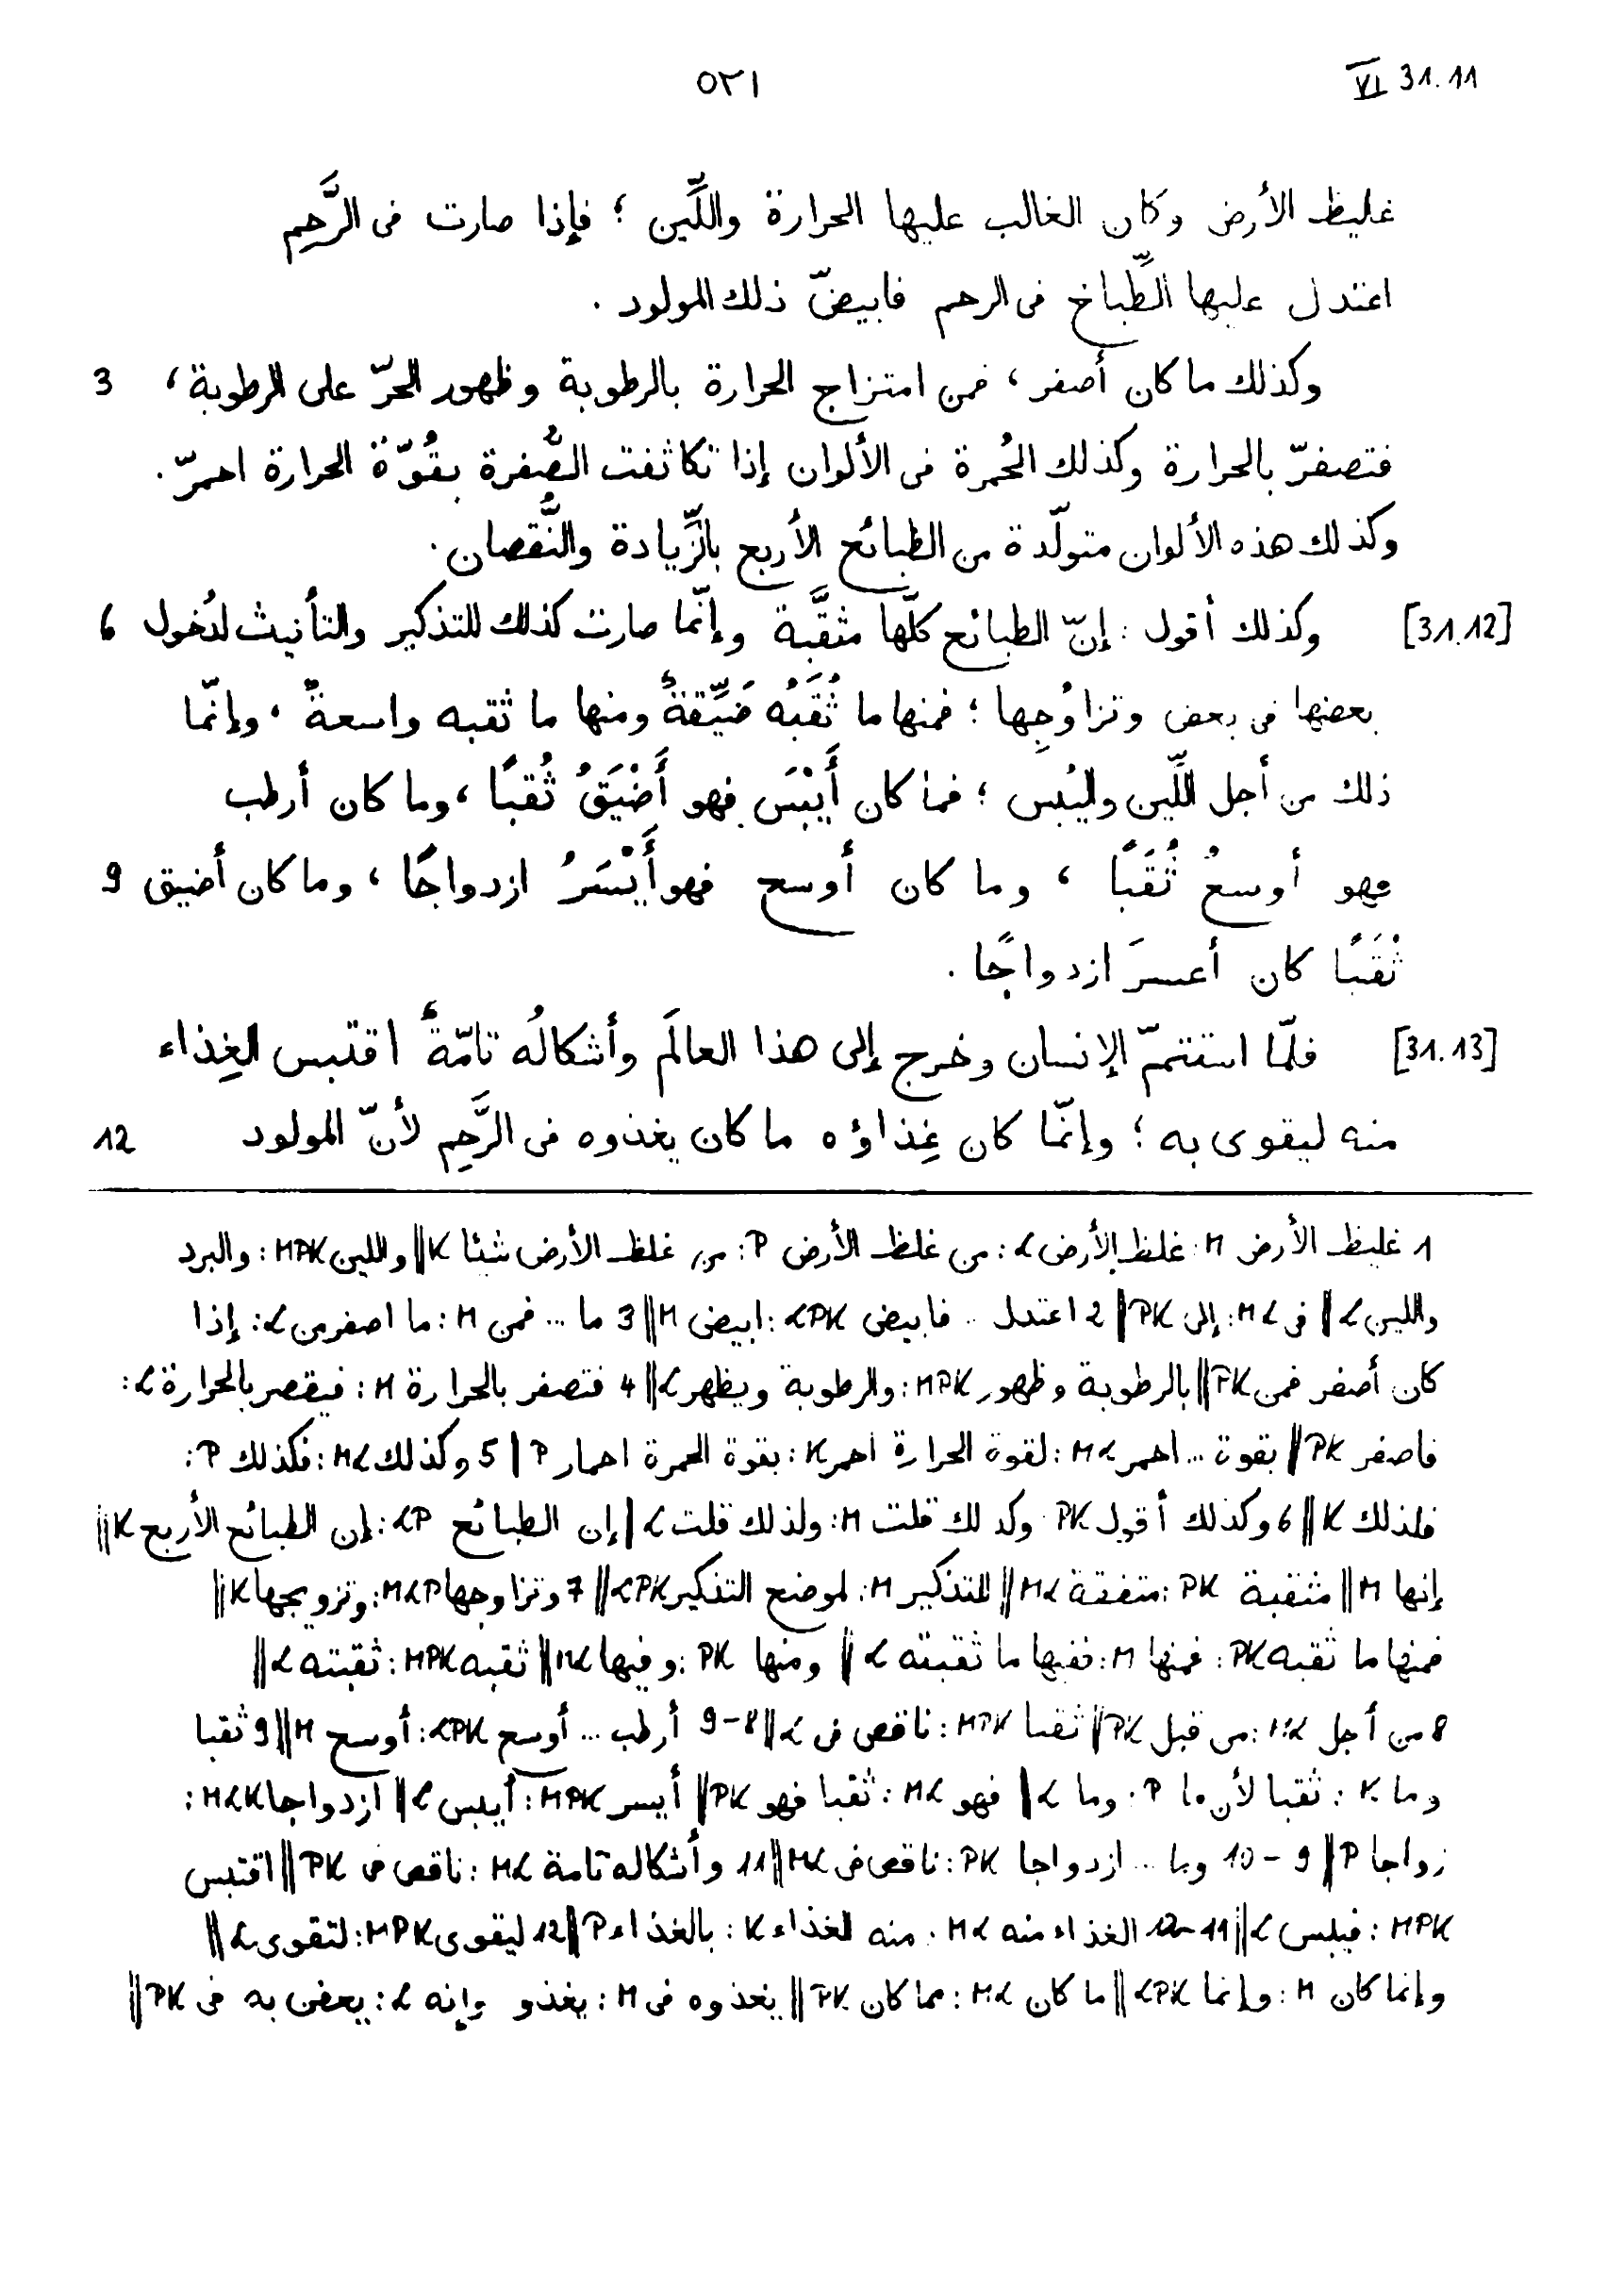 ٥٢١ VI 31.11
غليظ الأرض وكان الغالب عليها الحرارة واللِّين ؛ فإذا صارت فى الرَّحِم
اعتدل عليها الطِّباخ فى الرحم فابيضّ ذلك المولود .
وكذلك ما كان أصفر ، فمن امتزاج الحرارة بالرطوبة وظهور الحرّ على الرطوبة ، 3
فتصفرّ بالحرارة وكذلك الحُمرة فى الألوان إذا تكاثفت الصُّفرة بقُوّة الحرارة احمرّ .
وكذلك هذه الألوان متولّدة من الطبائع الأربع بالزِّيادة والنُّقصان .
[31.12] وكذلك أقول : إنّ الطبائع كلّها مثقَّبة وإنّما صارت كذلك للتذكير والتأنيث لدُخول 6
بعضها فى بعض وتزاوُجِها ؛ فمنها ما ثُقَبُه ضَيِّقةٌ ومنها ما ثقبه واسعةٌ ، وإنّما
ذلك من أجل اللِّين واليُبس ؛ فما كان أَيْبَسَ فهو أَضْيَقُ ثُقبًا ، وما كان أرطب
فهو أوسعُ ثُقَبًا ، وما كان أوسع فهو أَيْسَرُ ازدواجًا ، وما كان أضيق 9
ثُقَبًا كان أعسرَ ازدواجًا .
[31.13] فلمّا استتمّ الإنسان وخرج إلى هذا العالَم وأشكالُه تامّةٌ اقتبس الغِذاء
منه ليقوى به ؛ وإنّما كان غِذاؤه ما كان يغذوه فى الرَّحِم لأنّ المولود 12
1 غليظ الأرض M : غلظ الأرض L : من غلظ الأرض P : من غلظ الأرض شيئا K || واللين MPK : والبرد
واللين L || فى ML : إلى PK || 2 اعتدل .. فابيض LPK : ابيض M || 3 ما ... فمن M : ما اصفر من L : إذا
كان أصفر فمن PK || بالرطوبة وظهور MPK : والرطوبة ويظهر L || 4 فتصفر بالحرارة M : فيقصر بالحرارة L :
فاصفر PK || بقوة ... احمر ML : لقوة الحرارة احمر K : بقوة الحمرة احمار P | 5 وكذلك ML : فكذلك P :
فلذلك K || 6 وكذلك أقول PK . وكذلك قلت M : ولذلك قلت L | إن الطبائع LP : إن الطبائع الأربع K ||
إنها M || مثقبة PK : متفقة ML || للتذكير M : لموضع التذكير LPK || 7 وتزاوجها MLP : وتزويجها K ||
فمنها ما ثقبه PK : فمنها M : ففيها ما ثقبته L || ومنها PK : وفيها ML || ثقبه MPK : ثقبته L ||
8 من أجل ML : من قبل PK || ثقبا MPK : ناقص فى L || 8-9 أرطب ... أوسع LPK : أوسع M || 9 ثقبا
وما K : ثقبا لأن ما P : وما L | فهو ML : ثقبا فهو PK || أيسر MPK : أيبس L || ازدواجا MLK :
زواجا P || 9 - 10 وما ... ازدواجا PK : ناقص فى ML || 11 وأشكاله تامة ML : ناقص فى PK || اقتبس
MPK : فيلبس L || 11-12 الغذاء منه ML . منه الغذاء K : بالغذاء P || 12 ليقوى MPK : لتقوى L ||
وإنما كان M : وإنما LPK || ما كان ML : مما كان PK || يغذوه فى M : يغذو وإنه L : يعض به فى PK ||